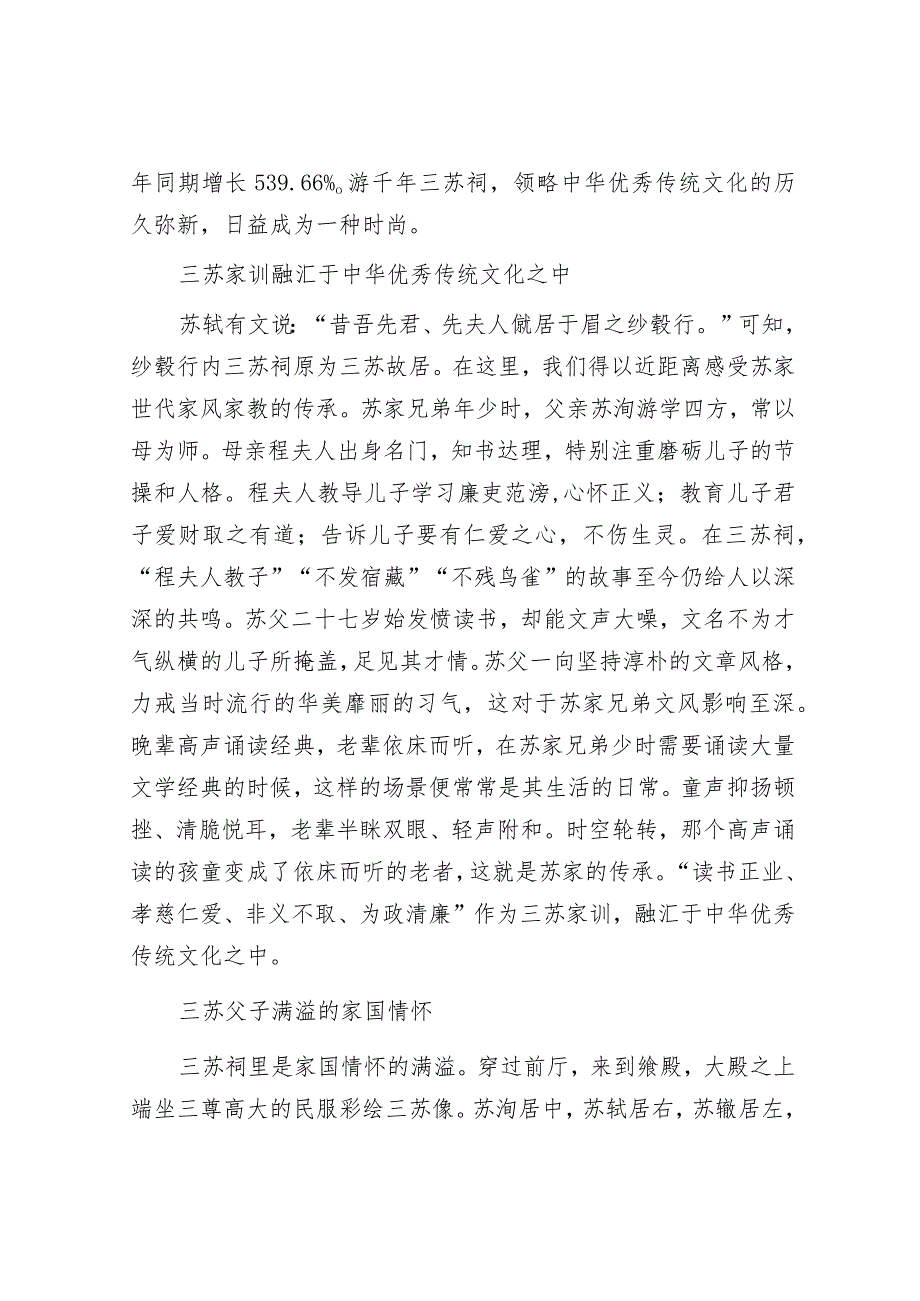 年同期增长 539.66%。游千年三苏祠，领略中华优秀传统文化的历
久弥新，日益成为一种时尚。
三苏家训融汇于中华优秀传统文化之中
苏轼有文说：“昔吾先君、先夫人僦居于眉之纱縠行。”可知，
纱縠行内三苏祠原为三苏故居。在这里，我们得以近距离感受苏家
世代家风家教的传承。苏家兄弟年少时，父亲苏洵游学四方，常以
母为师。母亲程夫人出身名门，知书达理，特别注重磨砺儿子的节
操和人格。程夫人教导儿子学习廉吏范滂,心怀正义；教育儿子君
子爱财取之有道；告诉儿子要有仁爱之心，不伤生灵。在三苏祠，
“程夫人教子”“不发宿藏”“不残鸟雀”的故事至今仍给人以深
深的共鸣。苏父二十七岁始发愤读书，却能文声大噪，文名不为才
气纵横的儿子所掩盖，足见其才情。苏父一向坚持淳朴的文章风格，
力戒当时流行的华美靡丽的习气，这对于苏家兄弟文风影响至深。
晚辈高声诵读经典，老辈依床而听，在苏家兄弟少时需要诵读大量
文学经典的时候，这样的场景便常常是其生活的日常。童声抑扬顿
挫、清脆悦耳，老辈半眯双眼、轻声附和。时空轮转，那个高声诵
读的孩童变成了依床而听的老者，这就是苏家的传承。“读书正业、
孝慈仁爱、非义不取、为政清廉”作为三苏家训，融汇于中华优秀
传统文化之中。
三苏父子满溢的家国情怀
三苏祠里是家国情怀的满溢。穿过前厅，来到飨殿，大殿之上
端坐三尊高大的民服彩绘三苏像。苏洵居中，苏轼居右，苏辙居左，